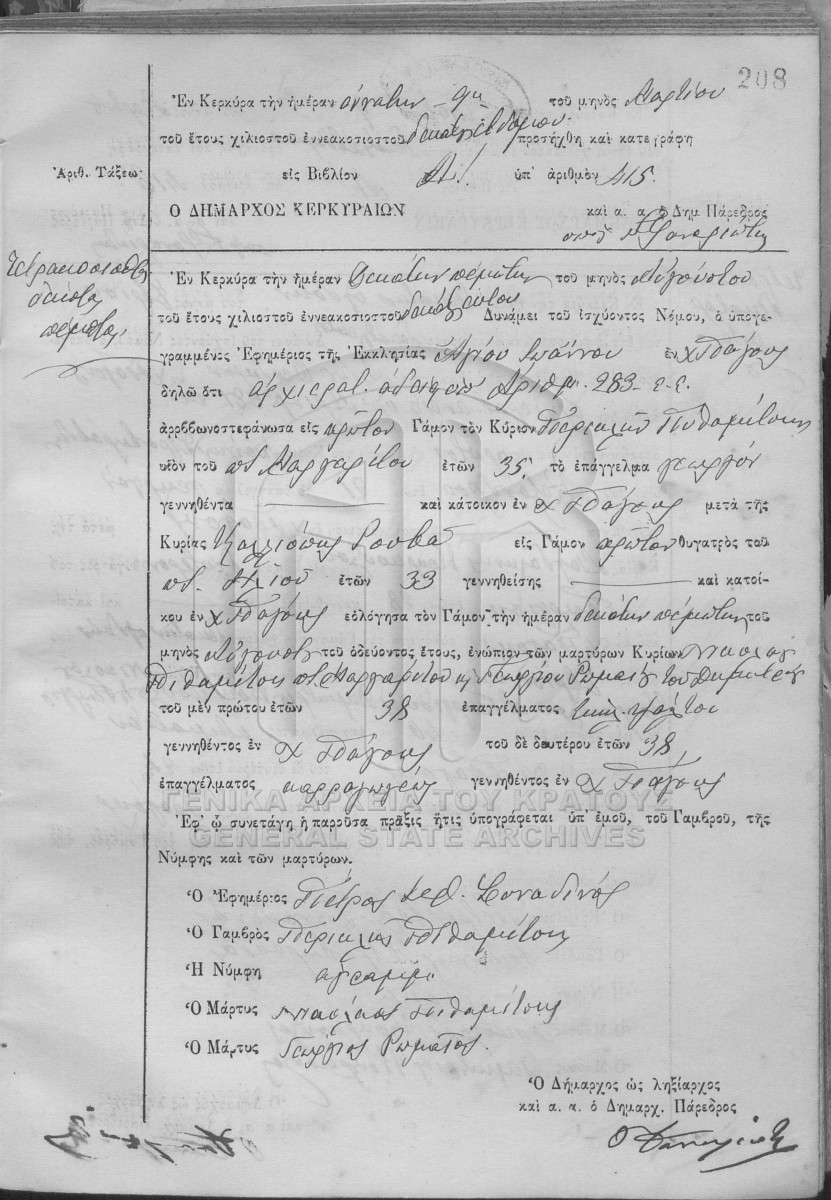 208
Ἐν Κερκύρα τὴν ἡμέραν ἐννάτην 9ην τοῦ μηνὸς Μαρτίου
τοῦ ἔτους χιλιοστοῦ ἐννεακοσιοστοῦ δεκάτου ἑβδόμου προσήχθη καὶ κατεγράφη
Ἀριθ. Τάξεως
εἰς Βιβλίον Α! ὑπ' ἀριθμὸν 415.
Ο ΔΗΜΑΡΧΟΣ ΚΕΡΚΥΡΑΙΩΝ
καὶ α. α. ὁ Δημ Πάρεδρος
Τετρακοσιοστὴ
δεκάτη
πέμπτη
Ἐν Κερκύρα τὴν ἡμέραν Δεκάτην πέμπτην τοῦ μηνὸς Αὐγούστου
τοῦ ἔτους χιλιοστοῦ ἐννεακοσιοστοῦ δεκάτου ἕκτου Δυνάμει τοῦ ἰσχύοντος Νόμου, ὁ ὑπογε-
γραμμένος Ἐφημέριος τῆς Ἐκκλησίας Ἁγίου Ἰωάννου ἐν χ Πάγους
δηλῶ ὅτι ἀρχιερατ. ἀδείᾳ Ἀριθμ. 283 ε.ε.
ἀρρβωνοστεφάνωσα εἰς πρῶτον Γάμον τὸν Κύριον Περικλῆν Πιθαμίτσην
υἱὸν τοῦ ποτ. Μαργαρίτου ἐτῶν 35, τὸ ἐπάγγελμα γεωργὸν
γεννηθέντα καὶ κάτοικον ἐν χ Πάγους μετὰ τῆς
Κυρίας Καλλιόπης Ρουβᾶ εἰς Γάμον πρῶτον θυγατρὸς τοῦ
ποτ. Ἠλιοῦ ἐτῶν 33 γεννηθείσης καὶ κατοί-
κου ἐν χ Πάγους εὐλόγησα τὸν Γάμον τὴν ἡμέραν δεκάτην πέμπτην τοῦ
μηνὸς Αὐγούστου τοῦ ὁδεύοντος ἔτους, ἐνώπιον τῶν μαρτύρων Κυρίων
Πιθαμίτση ποτ. Μαργαρίτου κ Γεωργίου Ρωμαίου τοῦ Δημητρίου
τοῦ μὲν πρώτου ἐτῶν 38 ἐπαγγέλματος ψάλτου
γεννηθέντος ἐν χ Πάγους τοῦ δὲ δευτέρου ἐτῶν 38
ἐπαγγέλματος καρραγωγέως γεννηθέντος ἐν χ Πάγους
ΓΕΝΙΚΑ ΑΡΧΕΙΑ ΤΟΥ ΚΡΑΤΟΥΣ
Ἐφ' ᾧ συνετάγη ἡ παροῦσα πρᾶξις ἥτις ὑπογράφεται ὑπ' ἐμοῦ, τοῦ Γαμβροῦ, τῆς
GENERAL STATE ARCHIVES
Νύμφης καὶ τῶν μαρτύρων.
Ὁ Ἐφημέριος Πέτρος
Ὁ Γαμβρὸς Περικλῆς Πιθαμίτσης
Ἡ Νύμφη ἀγράμμ.
Ὁ Μάρτυς Πιθαμίτσης
Ὁ Μάρτυς Γεώργιος Ρωμαῖος.
Ὁ Δήμαρχος ὡς ληξίαρχος
καὶ α. α. ὁ Δημαρχ. Πάρεδρος